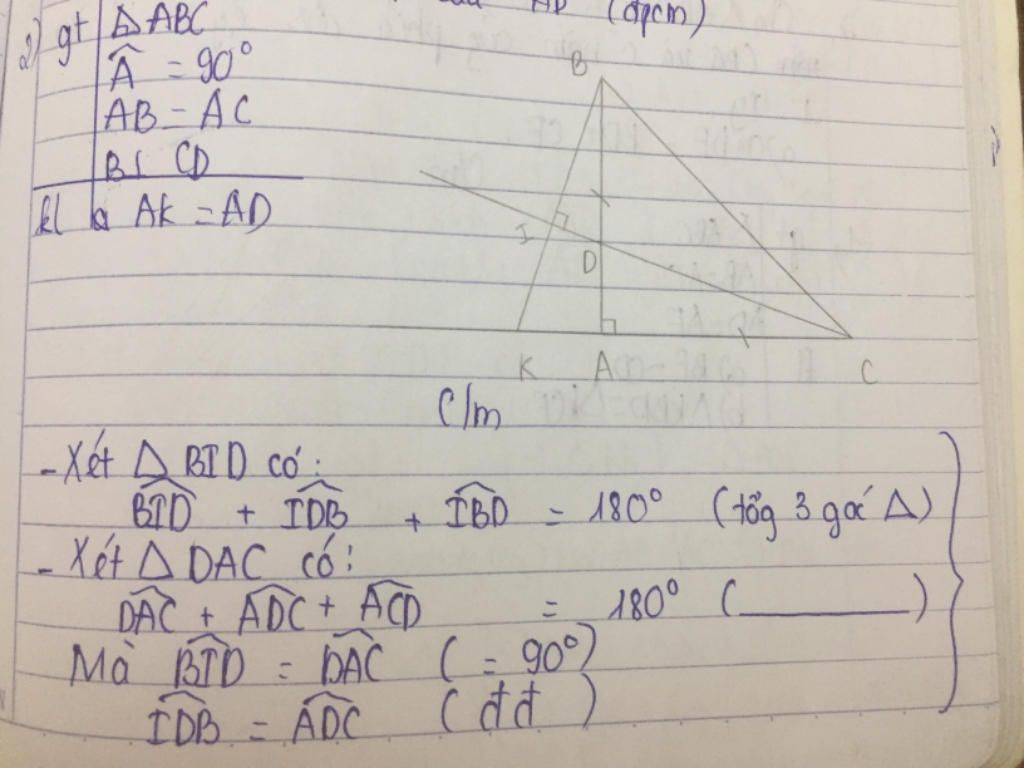 AD (đpcm)
2) gt ΔABC
Â = 90°
AB = AC
BI CD
kl a AK = AD
B
I
D
K A C
C/m
- Xét Δ BID có:
BID + IDB + IBD = 180° (tổg 3 goá Δ)
- Xét Δ DAC có:
DAC + ADC + ACD = 180° ( )
Mà BID = DAC ( = 90°)
IDB = ADC (đđ)